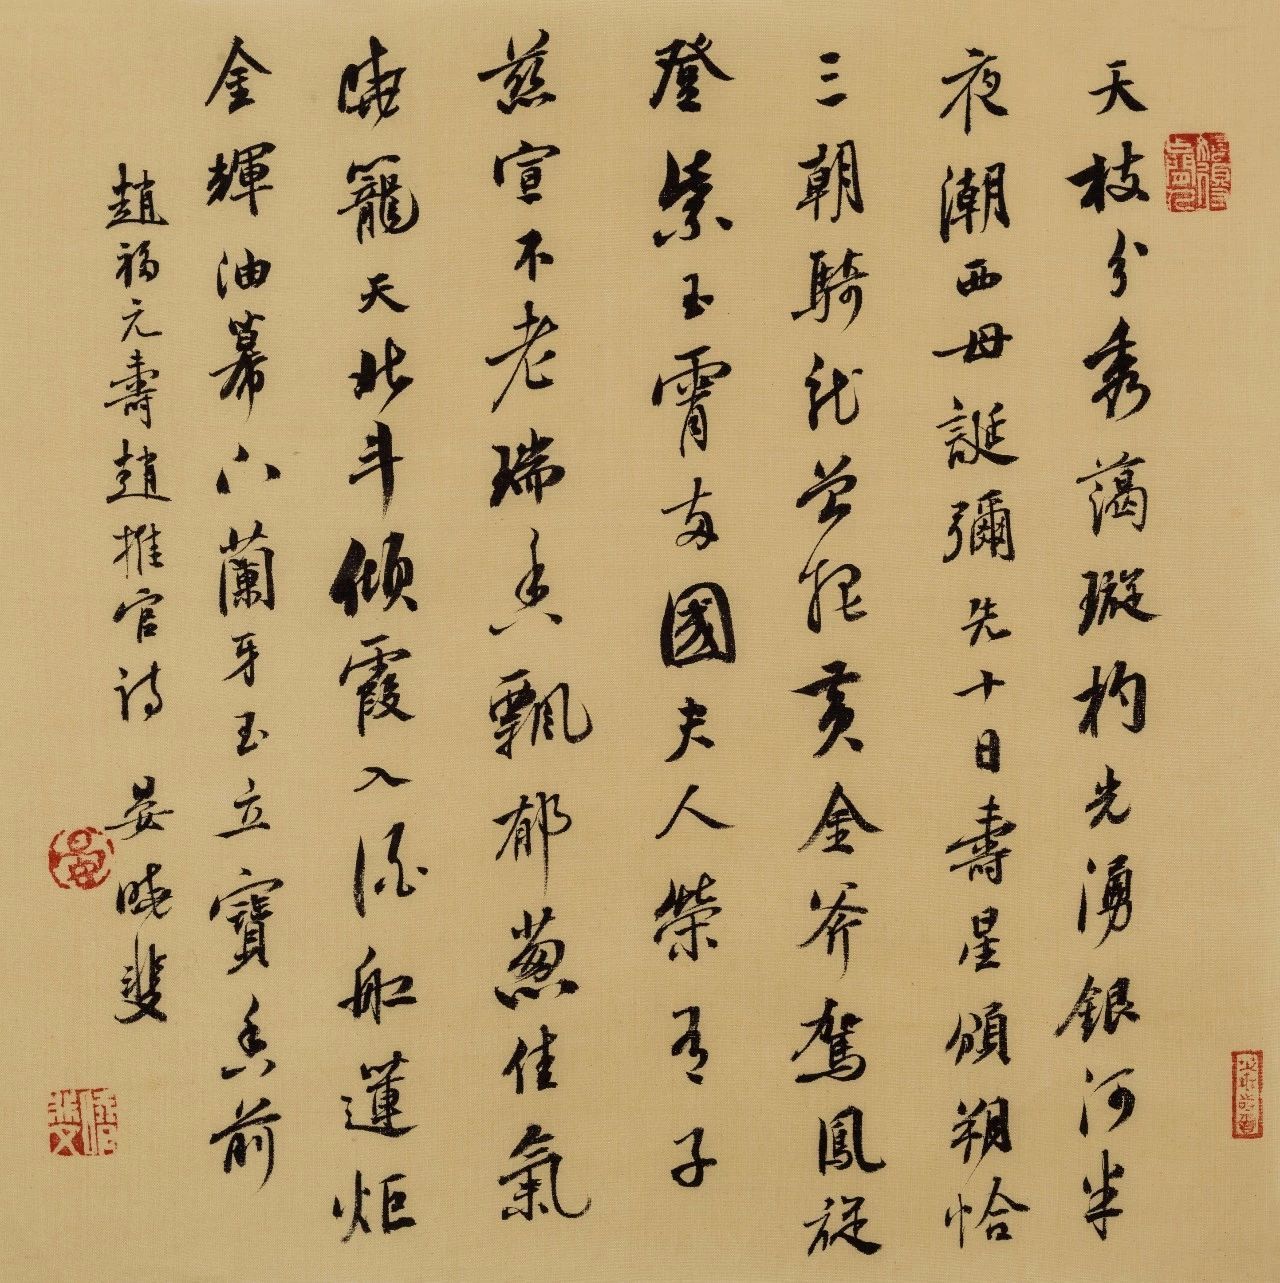 天枝分秀藹璇杓光湧銀河半
夜潮西母誕彌先十日壽星頒朔恰
三朝騎龍曾把黃金斧駕鳳旋
登紫玉霄兩國夫人榮有子
慈宣不老瑞香飄郁葱佳氣
曉籠天北斗傾霞入酒船蓮炬
金輝油幕下蘭牙玉立寶香前
趙福元壽趙推官詩 晏曉斐